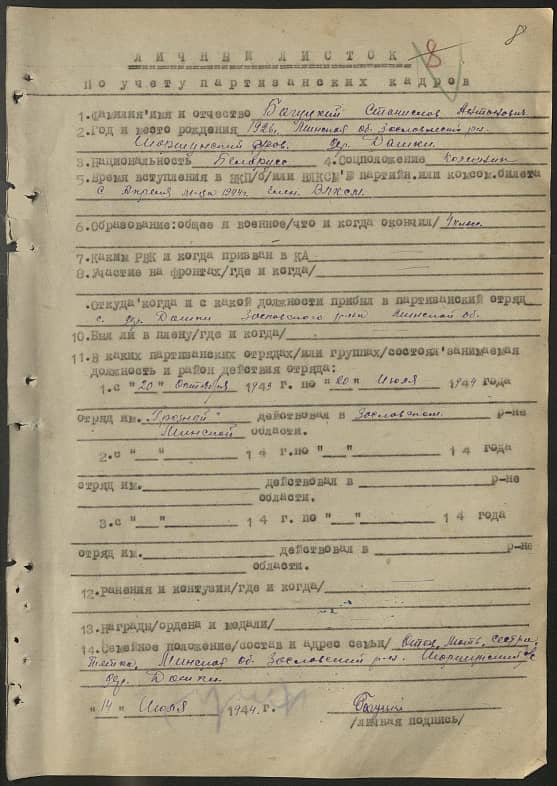 8
8
ЛИЧНЫЙ ЛИСТОК
По учету партизанских кадров
1.Фамилия'имя и отчество Багуцкий Станислав Антонович
2.Год и место рождения 1926г. Минская об. Зославский рн.
сов. дер. Дашки.
3.Национальность Беларусс 4.Соцположение колхозник
5.Время вступления в ВКП/б/или ВЛКСМ'№ партийн.или комсом.билета
с Апреля м-ца 1944г. член ВЛКСМ.
6.Образование:общее и военное/что и когда окончил/ 4 клас.
7.Каким РВК и когда призван в КА
8.Участие на фронтах/где и когда/
.Откуда'когда и с какой должности прибыл в партизанский отряд
с дер. Дашки Зославского р-на Минской об.
10.Был ли в плену/где и когда/
11.В каких партизанских отрядах/или группах/состоял'занимаемая
должность и район действия отряда:
1.с "20" Октября 1943 г. по "20" Июля 1944 года
отряд им. Грозной действовал в Зославском р-не
Минской области.
2.с "__" 1 4 г.по "__" 1 4 года
отряд им. действовал в р-не
области.
3.с "__" 1 4 г. по "__" 1 4 года
отряд им. действовал в р-не
области.
12.ранения и контузии/где и когда/
13.Награды/ордена и медали/
14.Семейное положение/состав и адрес семьи/ Отец, Мать, сестра,
Минская об. Зославский р-н.
дер. Дашки.
"14" Июля 1944 г.
/личная подпись/